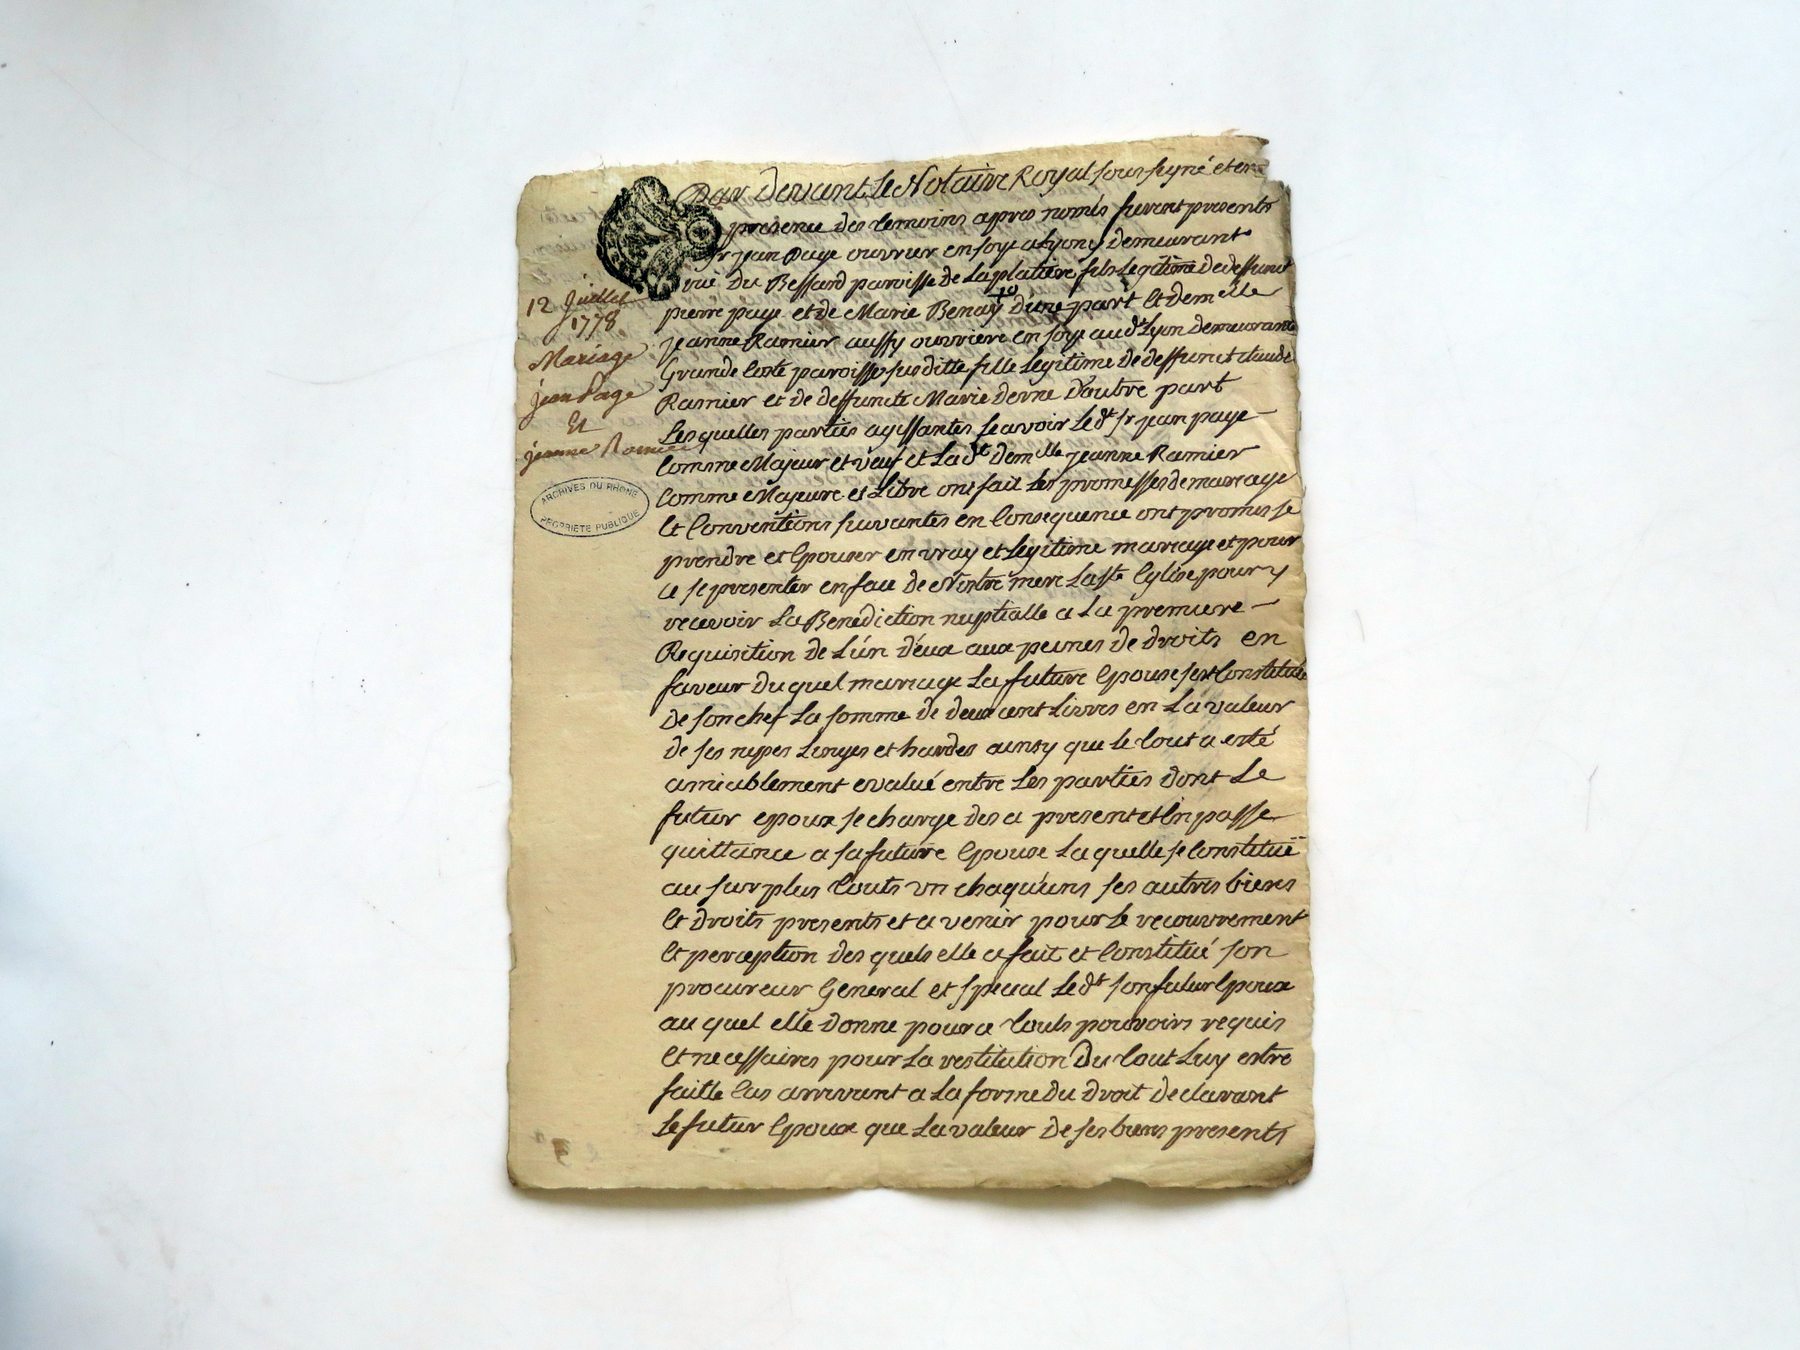 Par Devant Le Notaire Royal sous signé et en
presence des temoins apres només furent presents
Sr jean Paye ouvrier en soye a Lyon y demeurant
rüe Du Bessard paroisse de La platiere fils Legitime de deffunct
pierre paye et de Marie Benay d'une part Et demelle
jeanne Ramier aussy ouvriere en soye aud Lyon demeurante
Grande Coste paroisse susditte fille Legitime de deffunct claude
Ramier et de deffuncte Marie derne D'autre part
Lesquelles parties agissantes scavoir Le dt Sr jean paye
Comme Majeur et veuf et La dte demelle jeanne Ramier
Comme Majeure et Libre ont fait Les promesses de mariage
Et Conventions suivantes en Consequence ont promis se
prendre et Epouser en vray et Legitime mariage et pour
ce se presenter en face de Nostre mere La ste Eglise pour y
recevoir La Benediction nuptialle a La premiere
Requisition de L'ún d'éux aux peines de droits en
faveur Du quel mariage La future Epouse sest Constitüée
De son chef La somme de deux cent Livres en La valeur
de ses nipes Linges et hardes ainsy que le tout a esté
amiablement evalué entre Les parties dont Le
futur epoux se charge des a present et En passe
quittance a sa future Epouse La quelle se Constitüe
au sur plus touts un chaqu'uns ses autres biens
Et droits presents et a venir pour le recouvrement
Et perception des quels elle a fait et Constitué son
procureur General et special Le dt son futur Epoux
au quel elle donne pour ce touts pouvoirs requis
Et necessaires pour La restitution Du tout Luy estre
faitte Cas arrivant a La forme Du Droit declarant
Le futur Epoux que La valeur De ses biens presents
12 Juillet
1778
Mariage
jean Page
Et
jeanne Ramier
ARCHIVES DU RHONE
PROPRIETE PUBLIQUE